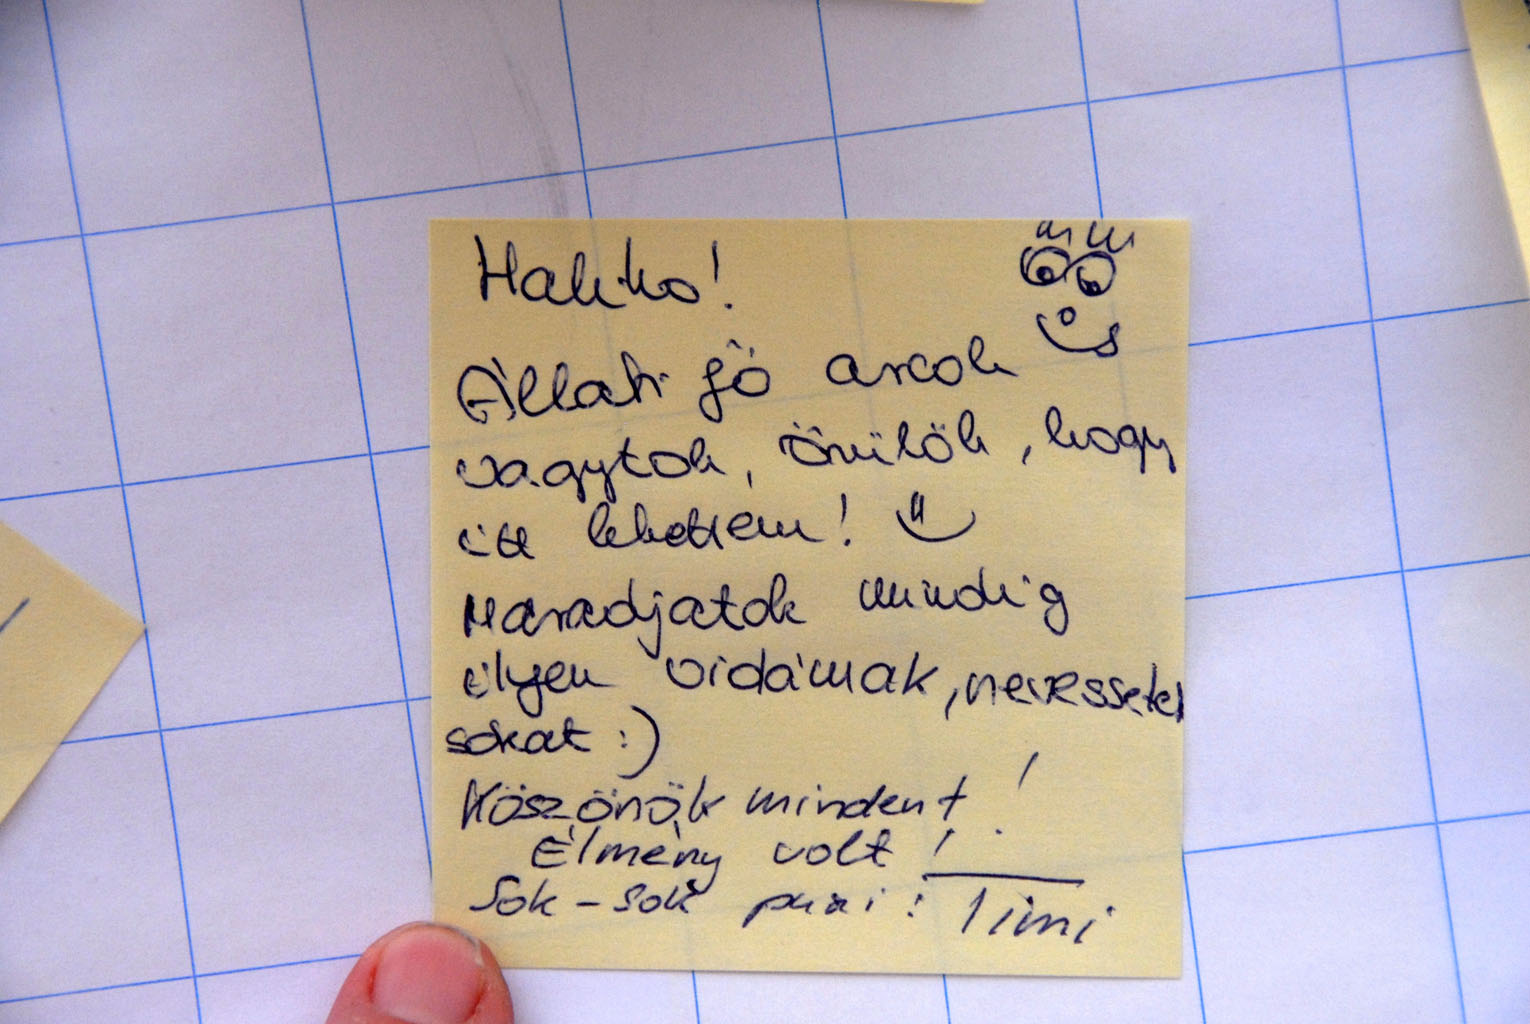 Halihó!
Állati jó arcok
vagytok, örülök, hogy
itt lehettem!
Maradjatok mindig
ilyen vidámak, nevessetek
sokat :)
Köszönök mindent!
Élmény volt!
Sok-sok puxi: Timi